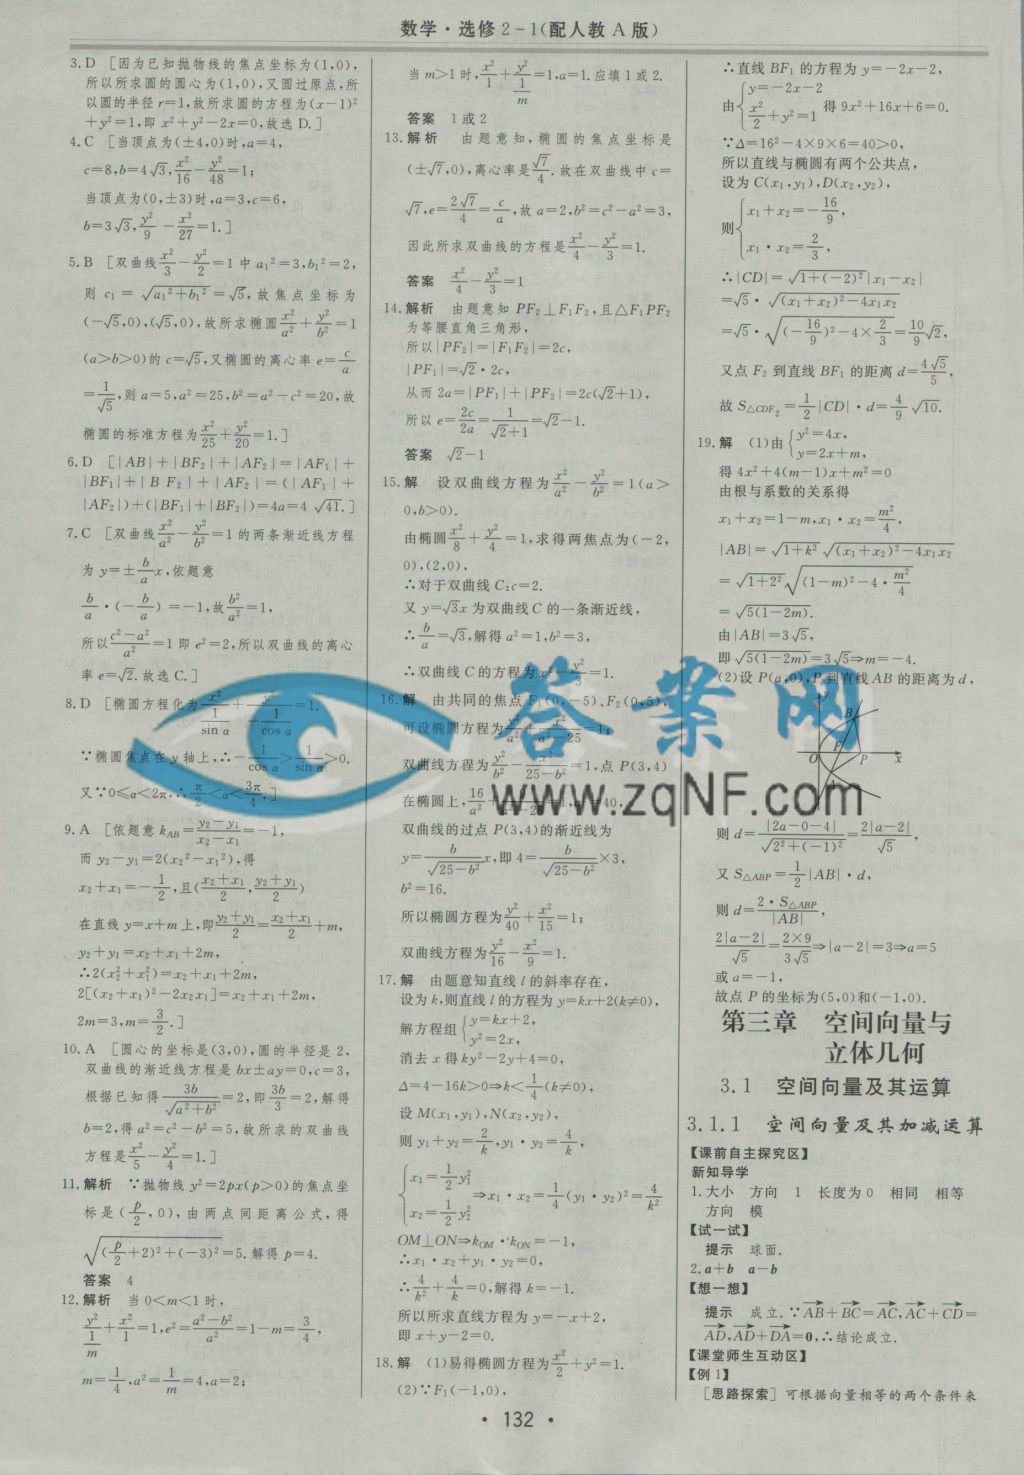 数学·选修2-1(配人教A版)
3.D [因为已知抛物线的焦点坐标为(1,0),
所以所求圆的圆心为(1,0),又圆过原点,所
以圆的半径r=1,故所求圆的方程为(x-1)²
+y²=1,即x²+y²-2x=0,故选D.]
4.C [当顶点为(±4,0)时,a=4,
c=8,b=4√3,x²/16-y²/48=1;
当顶点为(0,±3)时,a=3,c=6,
b=3√3,y²/9-x²/27=1.]
5.B [双曲线x²/3-y²/2=1中a₁²=3,b₁²=2,
则c₁=√(a₁²+b₁²)=√5,故焦点坐标为
(-√5,0),(√5,0),故所求椭圆x²/a²+y²/b²=1
(a>b>0)的c=√5,又椭圆的离心率e=c/a
=1/√5,则a=5,a²=25,b²=a²-c²=20,故
椭圆的标准方程为x²/25+y²/20=1.]
6.D [|AB|+|BF₂|+|AF₂|=|AF₁|+
|BF₁|+|B F₂|+|AF₂|=(|AF₁|+
|AF₂|)+(|BF₁|+|BF₂|)=4a=4√41.]
7.C [双曲线x²/a²-y²/b²=1的两条渐近线方程
为y=±(b/a)x,依题意
b/a·(-b/a)=-1,故b²/a²=1,
所以(c²-a²)/a²=1即e²=2,所以双曲线的离心
率e=√2.故选C.]
8.D [椭圆方程化为x²/(1/sin α)+y²/(-1/cos α)=1.
∵椭圆焦点在y轴上,∴-1/cos α>1/sin α>0.
又∵0≤α<2π,∴π/2<α<3π/4.]
9.A [依题意k_AB=(y₂-y₁)/(x₂-x₁)=-1,
而y₂-y₁=2(x₂²-x₁²),得
x₂+x₁=-1/2,且((x₂+x₁)/2,(y₂+y₁)/2)
在直线y=x+m上,即(y₂+y₁)/2=(x₂+x₁)/2+m,
y₂+y₁=x₂+x₁+2m,
∴2(x₂²+x₁²)=x₂+x₁+2m,
2[(x₂+x₁)²-2x₂x₁]=x₂+x₁+2m,
2m=3,m=3/2.]
10.A [圆心的坐标是(3,0),圆的半径是2,
双曲线的渐近线方程是bx±ay=0,c=3,
根据已知得3b/√(a²+b²)=2,即3b/3=2,解得
b=2,得a²=c²-b²=5,故所求的双曲线
方程是x²/5-y²/4=1.]
11.解析 ∵抛物线y²=2px(p>0)的焦点坐
标是(p/2,0),由两点间距离公式,得
√((p/2+2)²+(-3)²)=5.解得p=4.
答案 4
12.解析 当0<m<1时,
y²/(1/m)+x²/1=1,e²=(a²-b²)/a²=1-m=3/4,
m=1/4,a²=1/m=4,a=2;
当m>1时,x²/1+y²/(1/m)=1,a=1.应填1或2.
答案 1或2
13.解析 由题意知,椭圆的焦点坐标是
(±√7,0),离心率是√7/4.故在双曲线中c=
√7,e=2√7/4=c/a,故a=2,b²=c²-a²=3,
因此所求双曲线的方程是x²/4-y²/3=1.
答案 x²/4-y²/3=1
14.解析 由题意知PF₂⊥F₁F₂,且△F₁PF₂
为等腰直角三角形,
所以|PF₂|=|F₁F₂|=2c,
|PF₁|=√2·2c,
从而2a=|PF₁|+|PF₂|=2c(√2+1),
所以e=2c/2a=1/(√2+1)=√2-1.
答案 √2-1
15.解 设双曲线方程为x²/a²-y²/b²=1(a>
0,b>0).
由椭圆x²/8+y²/4=1,求得两焦点为(-2,
0),(2,0),
∴对于双曲线C:c=2.
又y=√3x为双曲线C的一条渐近线,
∴b/a=√3,解得a²=1,b²=3,
∴双曲线C的方程为x²-y²/3=1.
16.解 由共同的焦点F₁(0,-5)、F₂(0,5),
可设椭圆方程为y²/a²+x²/(a²-25)=1;
双曲线方程为y²/b²-x²/(25-b²)=1,点P(3,4)
在椭圆上,16/a²+9/(a²-25)=1,a²=40,
双曲线的过点P(3,4)的渐近线为
y=b/√(25-b²)x,即4=b/√(25-b²)×3,
b²=16.
所以椭圆方程为y²/40+x²/15=1;
双曲线方程为y²/16-x²/9=1.
17.解 由题意知直线l的斜率存在,
设为k,则直线l的方程为y=kx+2(k≠0),
解方程组{y=kx+2,
y²=2x,
消去x得ky²-2y+4=0,
Δ=4-16k>0⇒k<1/4(k≠0),
设M(x₁,y₁),N(x₂,y₂),
则y₁+y₂=2/k,y₁·y₂=4/k,
{x₁=1/2y₁²
x₂=1/2y₂² ⇒x₁·x₂=1/4(y₁·y₂)²=4/k²
OM⊥ON⇒k_OM·k_ON=-1,
∴x₁·x₂+y₁·y₂=0,
∴4/k²+4/k=0,解得k=-1.
所以所求直线方程为y=-x+2,
即x+y-2=0.
18.解 (1)易得椭圆方程为x²/2+y²=1.
(2)∵F₁(-1,0),
∴直线BF₁的方程为y=-2x-2,
由{y=-2x-2
x²/2+y²=1 得9x²+16x+6=0.
∵Δ=16²-4×9×6=40>0,
所以直线与椭圆有两个公共点,
设为C(x₁,y₁),D(x₂,y₂),
则{x₁+x₂=-16/9,
x₁·x₂=2/3,
∴|CD|=√(1+(-2)²)|x₁-x₂|
=√5·√((x₁+x₂)²-4x₁x₂)
=√5·√((-16/9)²-4×2/3)=10/9√2,
又点F₂到直线BF₁的距离d=4√5/5,
故S△CDF₂=1/2|CD|·d=4/9√10.
19.解 (1)由{y²=4x,
y=2x+m,
得4x²+4(m-1)x+m²=0
由根与系数的关系得
x₁+x₂=1-m,x₁·x₂=m²/4,
|AB|=√(1+k²)√((x₁+x₂)²-4x₁x₂)
=√(1+2²)√((1-m)²-4·m²/4)
=√(5(1-2m)).
由|AB|=3√5,
即√(5(1-2m))=3√5⇒m=-4.
(2)设P(a,0),P到直线AB的距离为d,
y B O F P x A
则d=|2a-0-4|/√(2²+(-1)²)=2|a-2|/√5,
又S△ABP=1/2|AB|·d,
则d=2·S△ABP/|AB|,
2|a-2|/√5=2×9/3√5⇒|a-2|=3⇒a=5
或a=-1,
故点P的坐标为(5,0)和(-1,0).
第三章 空间向量与
立体几何
3.1 空间向量及其运算
3.1.1 空间向量及其加减运算
【课前自主探究区】
新知导学
1.大小 方向 1 长度为0 相同 相等
方向 模
【试一试】
提示 球面.
2.a+b a-b
【想一想】
提示 成立.∵AB+BC=AC,AC+CD=
AD,AD+DA=0,∴结论成立.
【课堂师生互动区】
【例1】
[思路探索] 可根据向量相等的两个条件来
·132·
答案网
www.zqNF.com